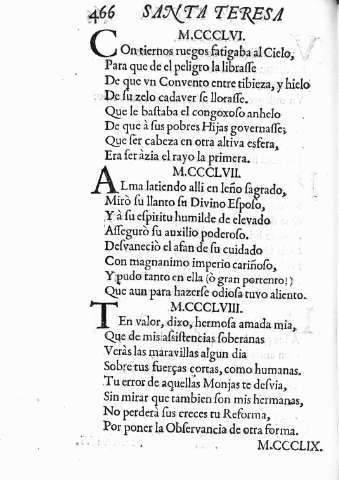 466 SANTA TERESA
M.CCCLVI.
COn tiernos ruegos fatigaba al Cielo,
Para que de el peligro la librasse
De que vn Convento entre tibieza, y hielo
De su zelo cadaver se llorasse.
Que le bastaba el congoxoso anhelo
De que à sus pobres Hijas governasse;
Que ser cabeza en otra altiva esfera,
Era ser àzia el rayo la primera.
M.CCCLVII.
ALma latiendo alli en leño sagrado,
Mirò su llanto su Divino Esposo,
Y à su espiritu humilde de elevado
Assegurò su auxilio poderoso.
Desvaneciò el afan de su cuidado
Con magnanimo imperio cariñoso,
Y pudo tanto en ella (ò gran portento!)
Que aun para hazerse odiosa tuvo aliento.
M.CCCLVIII.
TEn valor, dixo, hermosa amada mia,
Que de mis assistencias soberanas
Veràs las maravillas algun dia
Sobre tus fuerças cortas, como humanas.
Tu error de aquellas Monjas te desvia,
Sin mirar que tambien son mis hermanas,
No perderà sus creces tu Reforma,
Por poner la Observancia de otra forma.
M.CCCLIX.